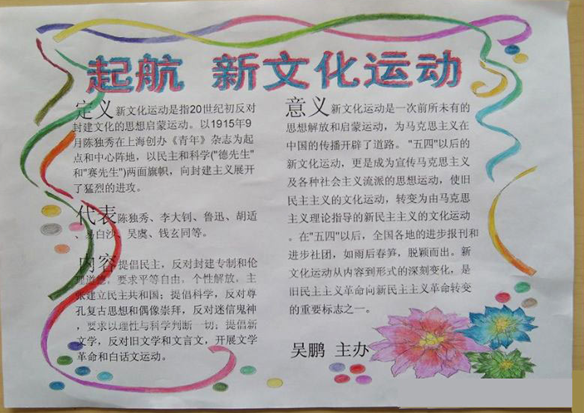 起航 新文化运动
定义新文化运动是指20世纪初反对
封建文化的思想启蒙运动。以1915年9
月陈独秀在上海创办《青年》杂志为起
点和中心阵地，以民主和科学("德先生"
和"赛先生")两面旗帜，向封建主义展开
了猛烈的进攻。
代表陈独秀、李大钊、鲁迅、胡适
、易白沙、吴虞、钱玄同等。
内容提倡民主，反对封建专制和伦
理道德，要求平等自由，个性解放，主
张建立民主共和国；提倡科学，反对尊
孔复古思想和偶像崇拜，反对迷信鬼神
，要求以理性与科学判断一切；提倡新
文学，反对旧文学和文言文，开展文学
革命和白话文运动。
意义新文化运动是一次前所未有的
思想解放和启蒙运动，为马克思主义在
中国的传播开辟了道路。"五四"以后的
新文化运动，更是成为宣传马克思主义
及各种社会主义流派的思想运动，使旧
民主主义的文化运动，转变为由马克思
主义理论指导的新民主主义的文化运动
。在"五四"以后，全国各地的进步报刊和
进步社团，如雨后春笋，脱颖而出。新
文化运动从内容到形式的深刻变化，是
旧民主主义革命向新民主主义革命转变
的重要标志之一。
吴鹏 主办